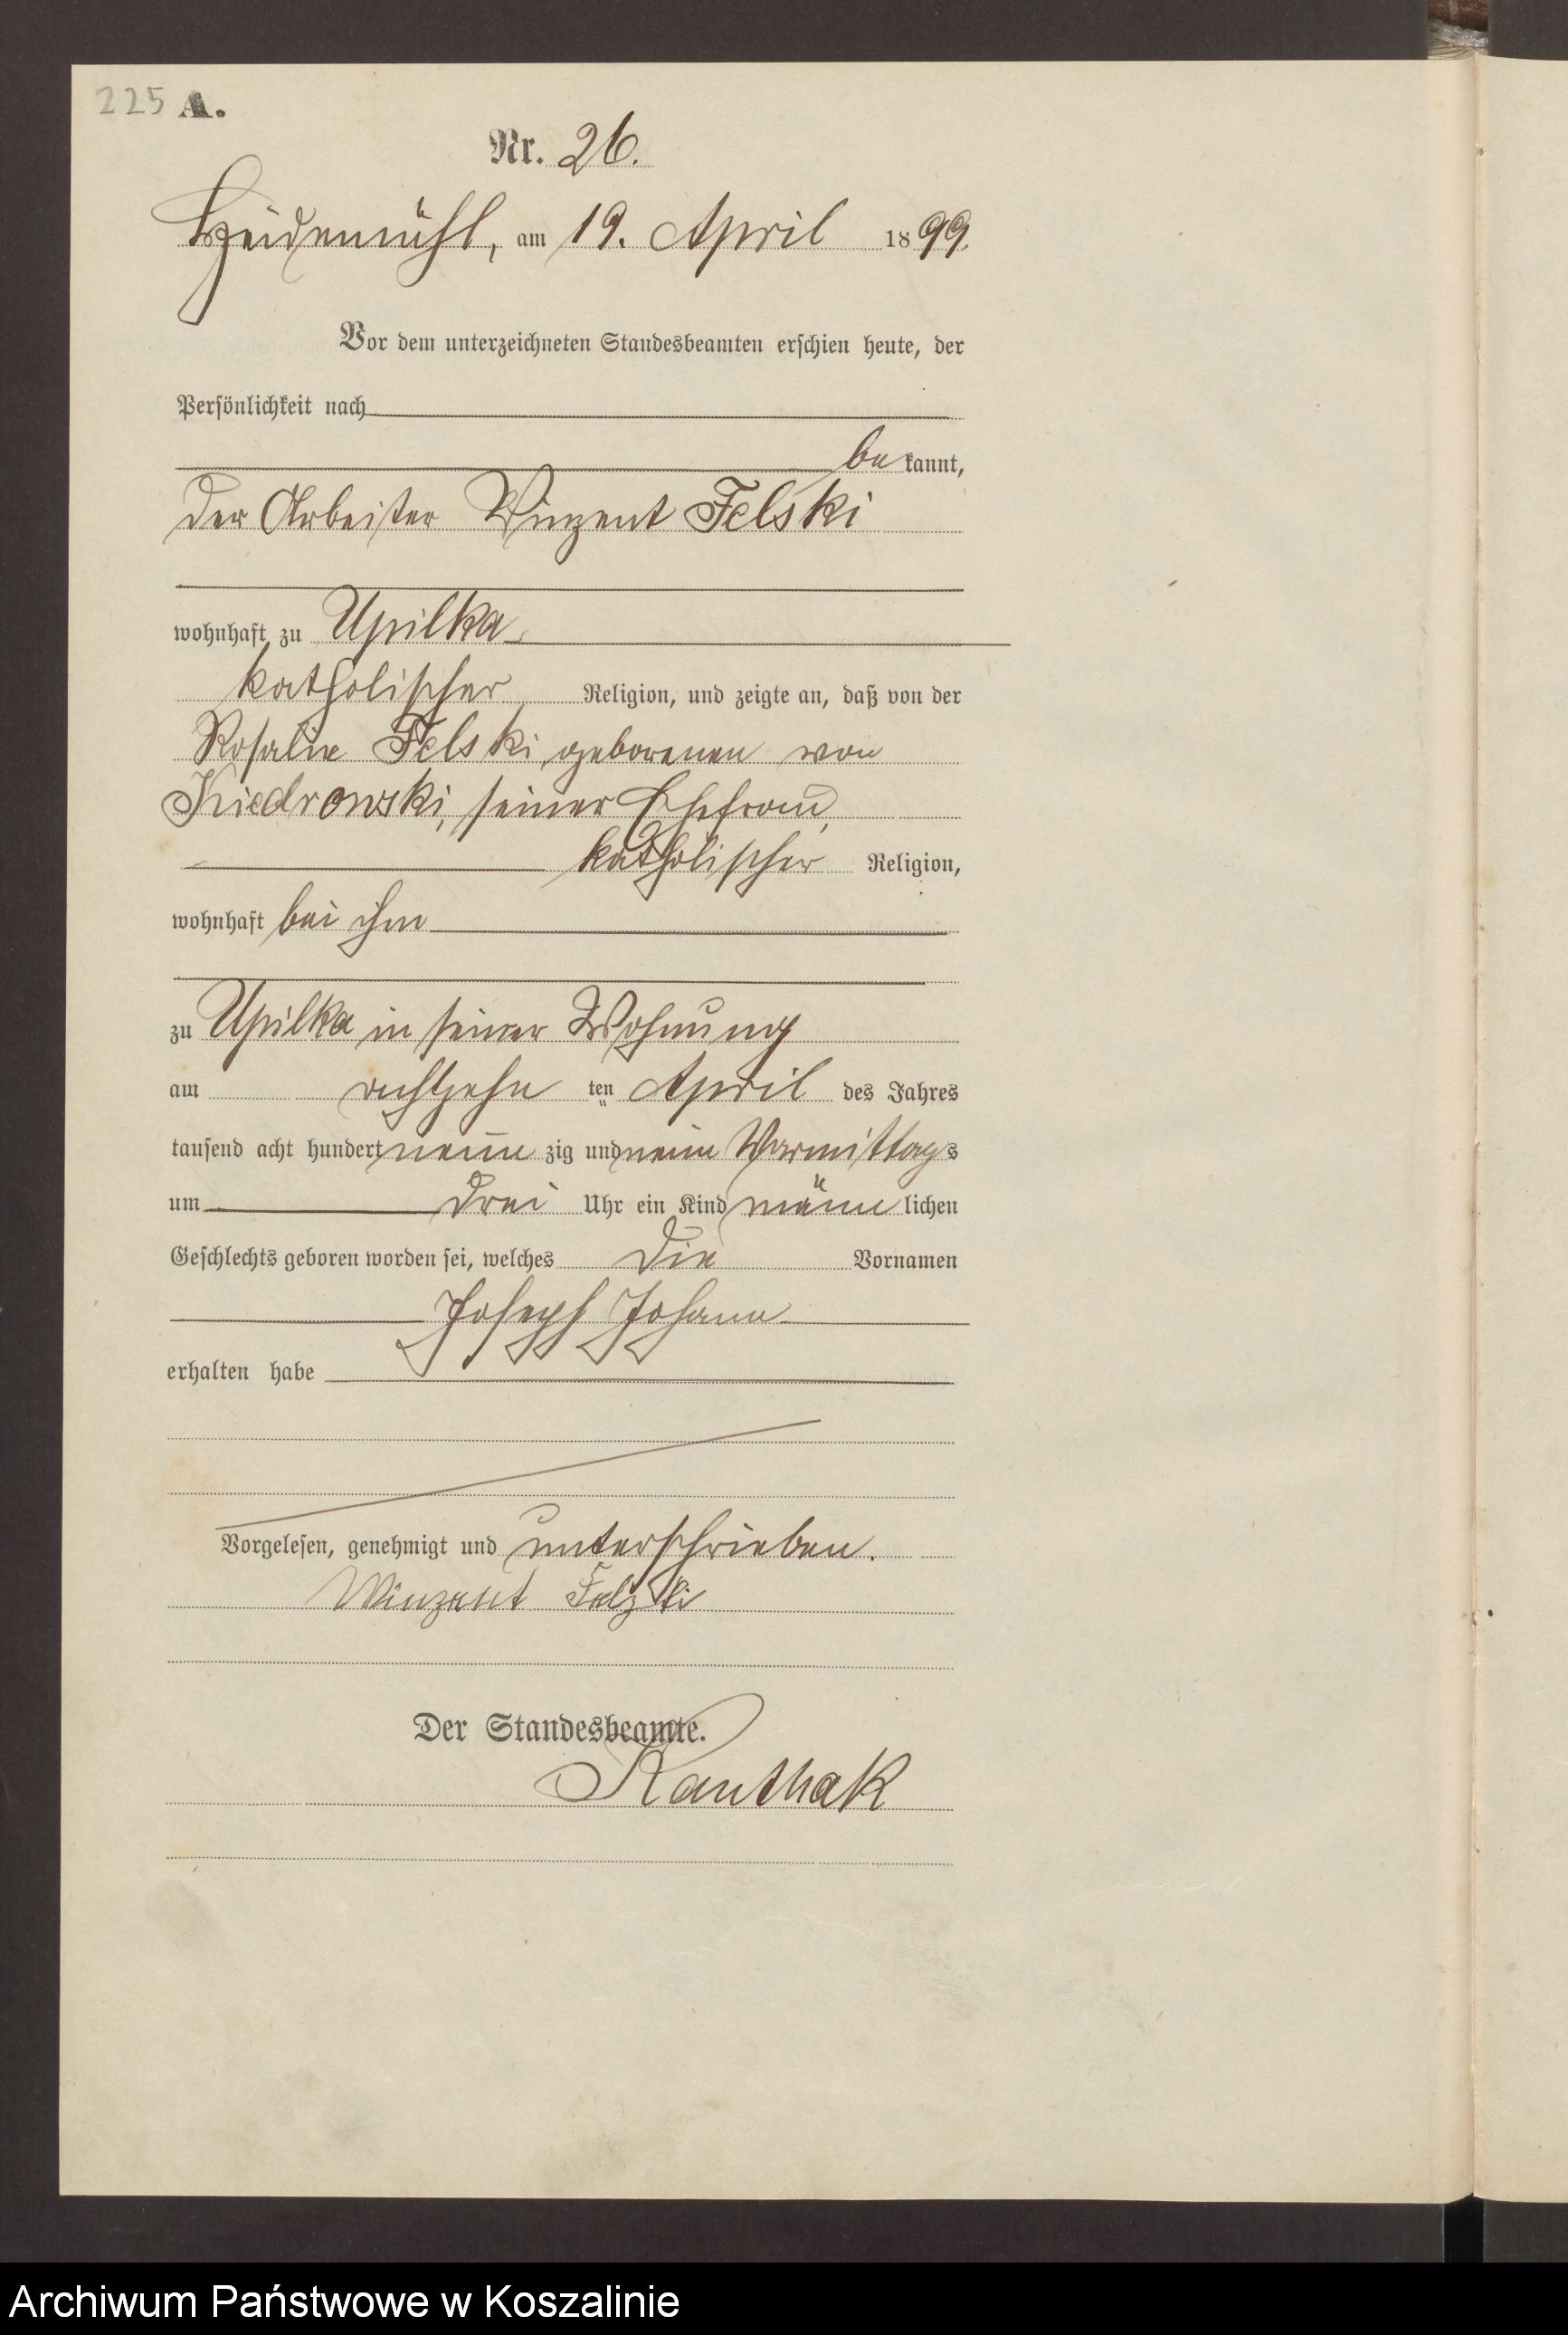 225 A.
Nr. 26.
Heidemühl, am 19. April 1899.
Vor dem unterzeichneten Standesbeamten erschien heute, der
Persönlichkeit nach
bekannt,
der Arbeiter Vinzent Felski
wohnhaft zu Upilka
katholischer Religion, und zeigte an, daß von der
Rosalie Felski, geborenen von
Kiedrowski, seiner Ehefrau,
katholischer Religion,
wohnhaft bei ihm
zu Upilka in seiner Wohnung
am achtzehn ten April des Jahres
tausend acht hundert neun zig und neun Vormittags
um drei Uhr ein Kind männlichen
Geschlechts geboren worden sei, welches die Vornamen
Joseph Johann
erhalten habe
Vorgelesen, genehmigt und unterschrieben.
Winzent Felzki
Der Standesbeamte.
Kauthak
Archiwum Państwowe w Koszalinie